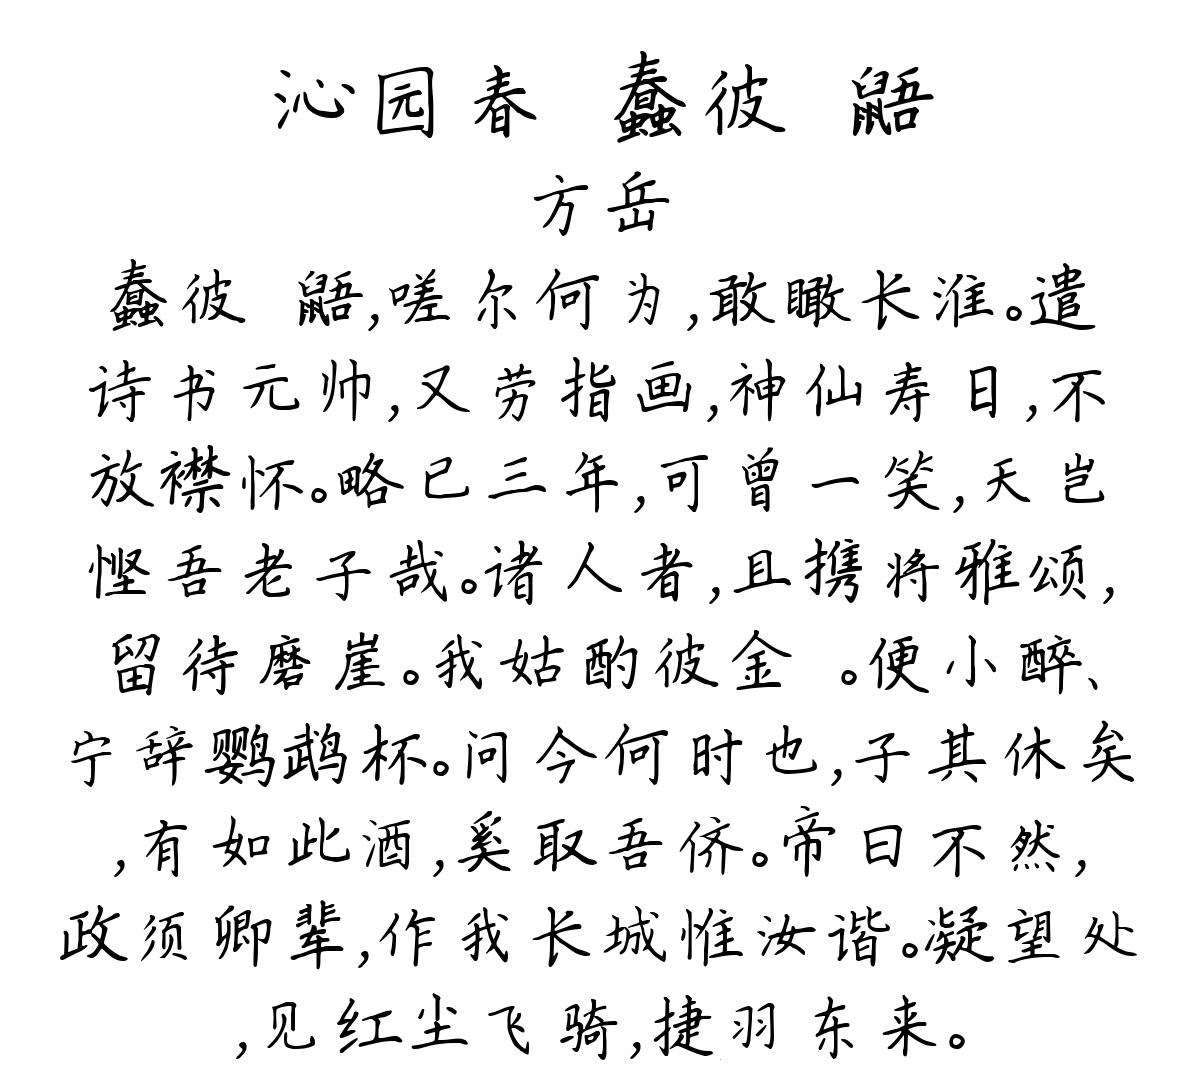 沁园春 蠢彼 鼯
方岳
蠢彼 鼯,嗟尔何为,敢瞰长淮。遣
诗书元帅,又劳指画,神仙寿日,不
放襟怀。略已三年,可曾一笑,天岂
悭吾老子哉。诸人者,且携将雅颂,
留待磨崖。我姑酌彼金 。便小醉、
宁辞鹦鹉杯。问今何时也,子其休矣
,有如此酒,奚取吾侪。帝曰不然,
政须卿辈,作我长城惟汝谐。凝望处
,见红尘飞骑,捷羽东来。